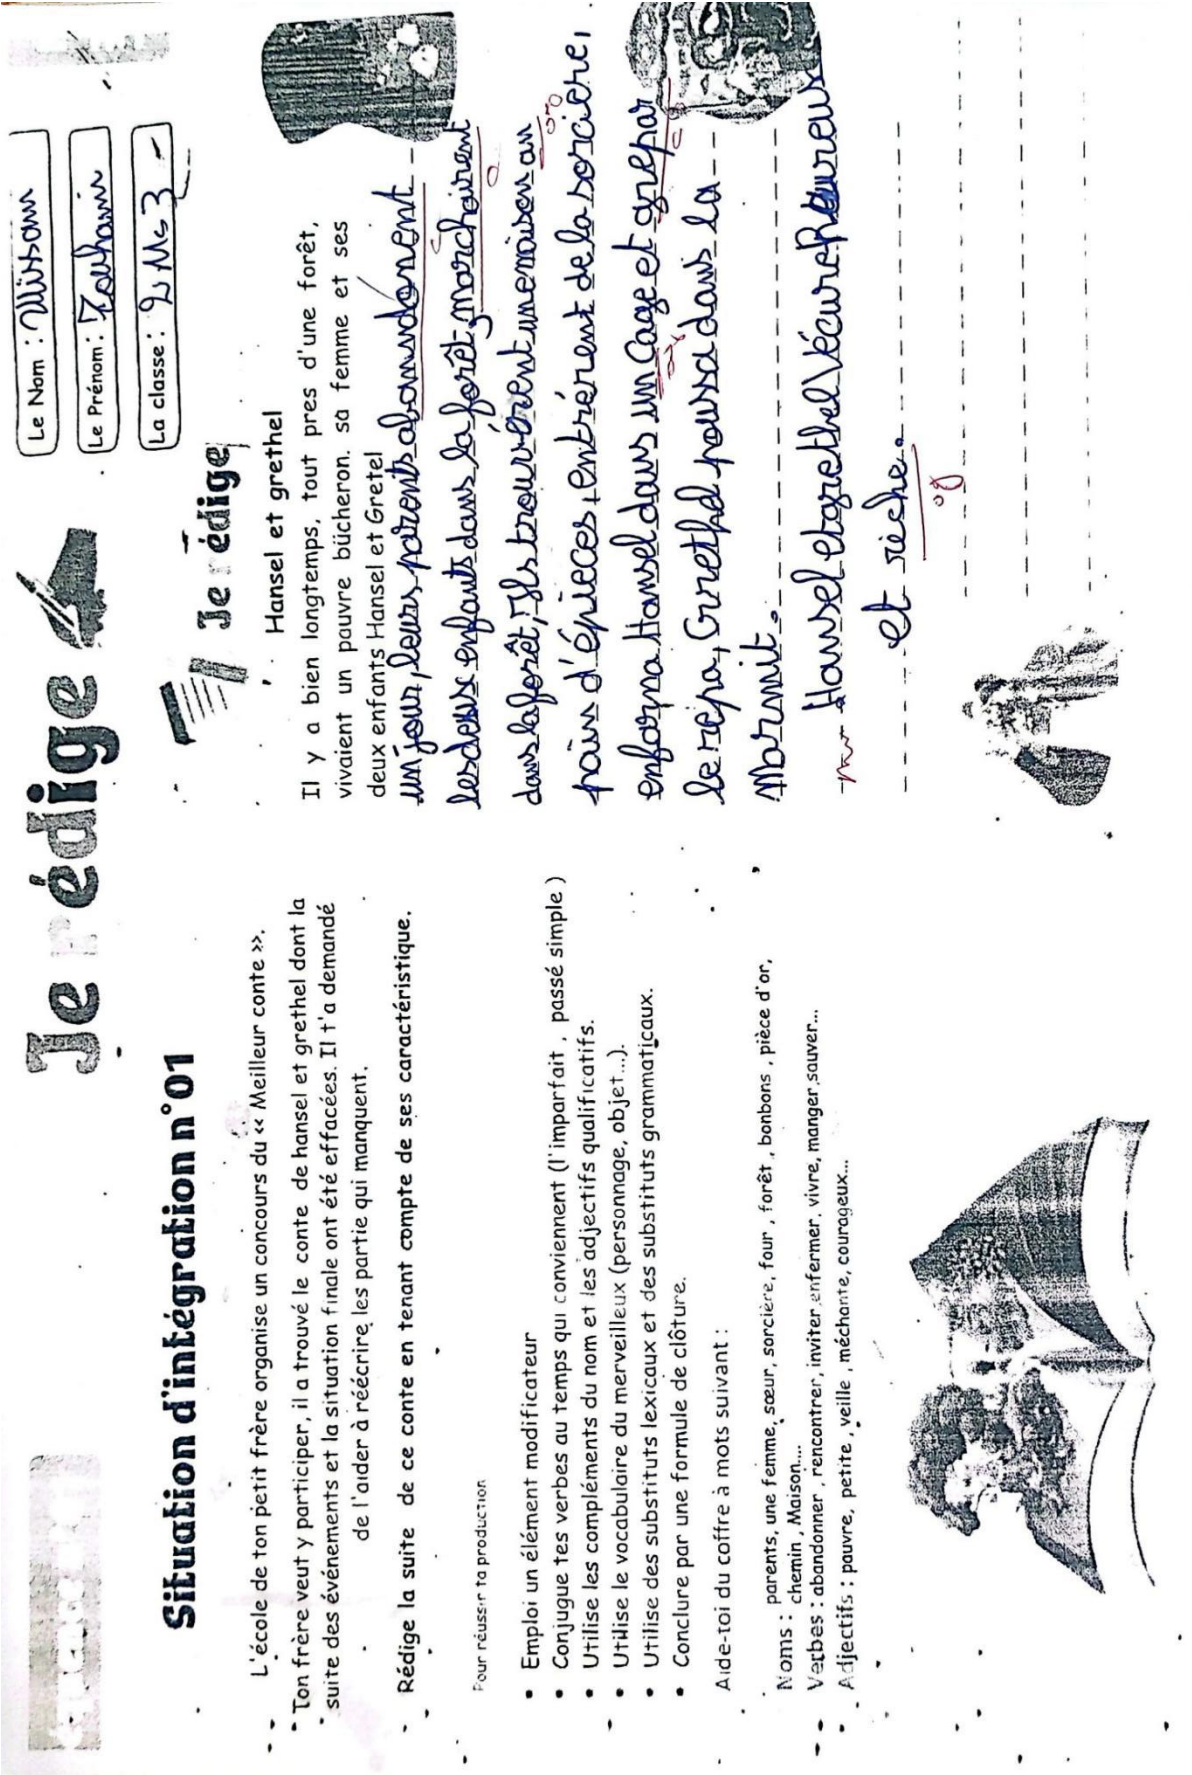 Je rédige
Situation d'intégration n°01
L'école de ton petit frère organise un concours du « Meilleur conte ».
Ton frère veut y participer, il a trouvé le conte de hansel et grethel dont la
suite des événements et la situation finale ont été effacées. Il t'a demandé
de l'aider à réécrire les partie qui manquent.
Rédige la suite de ce conte en tenant compte de ses caractéristique.
Pour réussir ta production
• Emploi un élément modificateur
• Conjugue tes verbes au temps qui conviennent (l'imparfait , passé simple )
• Utilise les compléments du nom et les adjectifs qualificatifs.
• Utilise le vocabulaire du merveilleux (personnage, objet...).
• Utilise des substituts lexicaux et des substituts grammaticaux.
• Conclure par une formule de clôture.
Aide-toi du coffre à mots suivant :
Noms : parents, une femme, sœur, sorcière, four , forêt , bonbons , pièce d'or,
chemin , Maison....
Verbes : abandonner , rencontrer, inviter ,enfermer, vivre, manger ,sauver...
Adjectifs : pauvre, petite , veille , méchante, courageux...
Le Nom :
Le Prénom :
La classe : 2 Ms 3
Je rédige
Hansel et grethel
Il y a bien longtemps, tout pres d'une forêt,
vivaient un pauvre bûcheron. sa femme et ses
deux enfants Hansel et Gretel
un jour, leurs parents aboundonent
les deux enfants dans la forêt, marchairent
dans la forêt, Ils trouvèrent une maison an
pain d'épieces, entrérent de la sorciere,
enforma Hansel dans un Cage et grepar
le repa, Grethel poussa dans la
Marmit.
Hansel et grethel vécure heureux
et rèche.